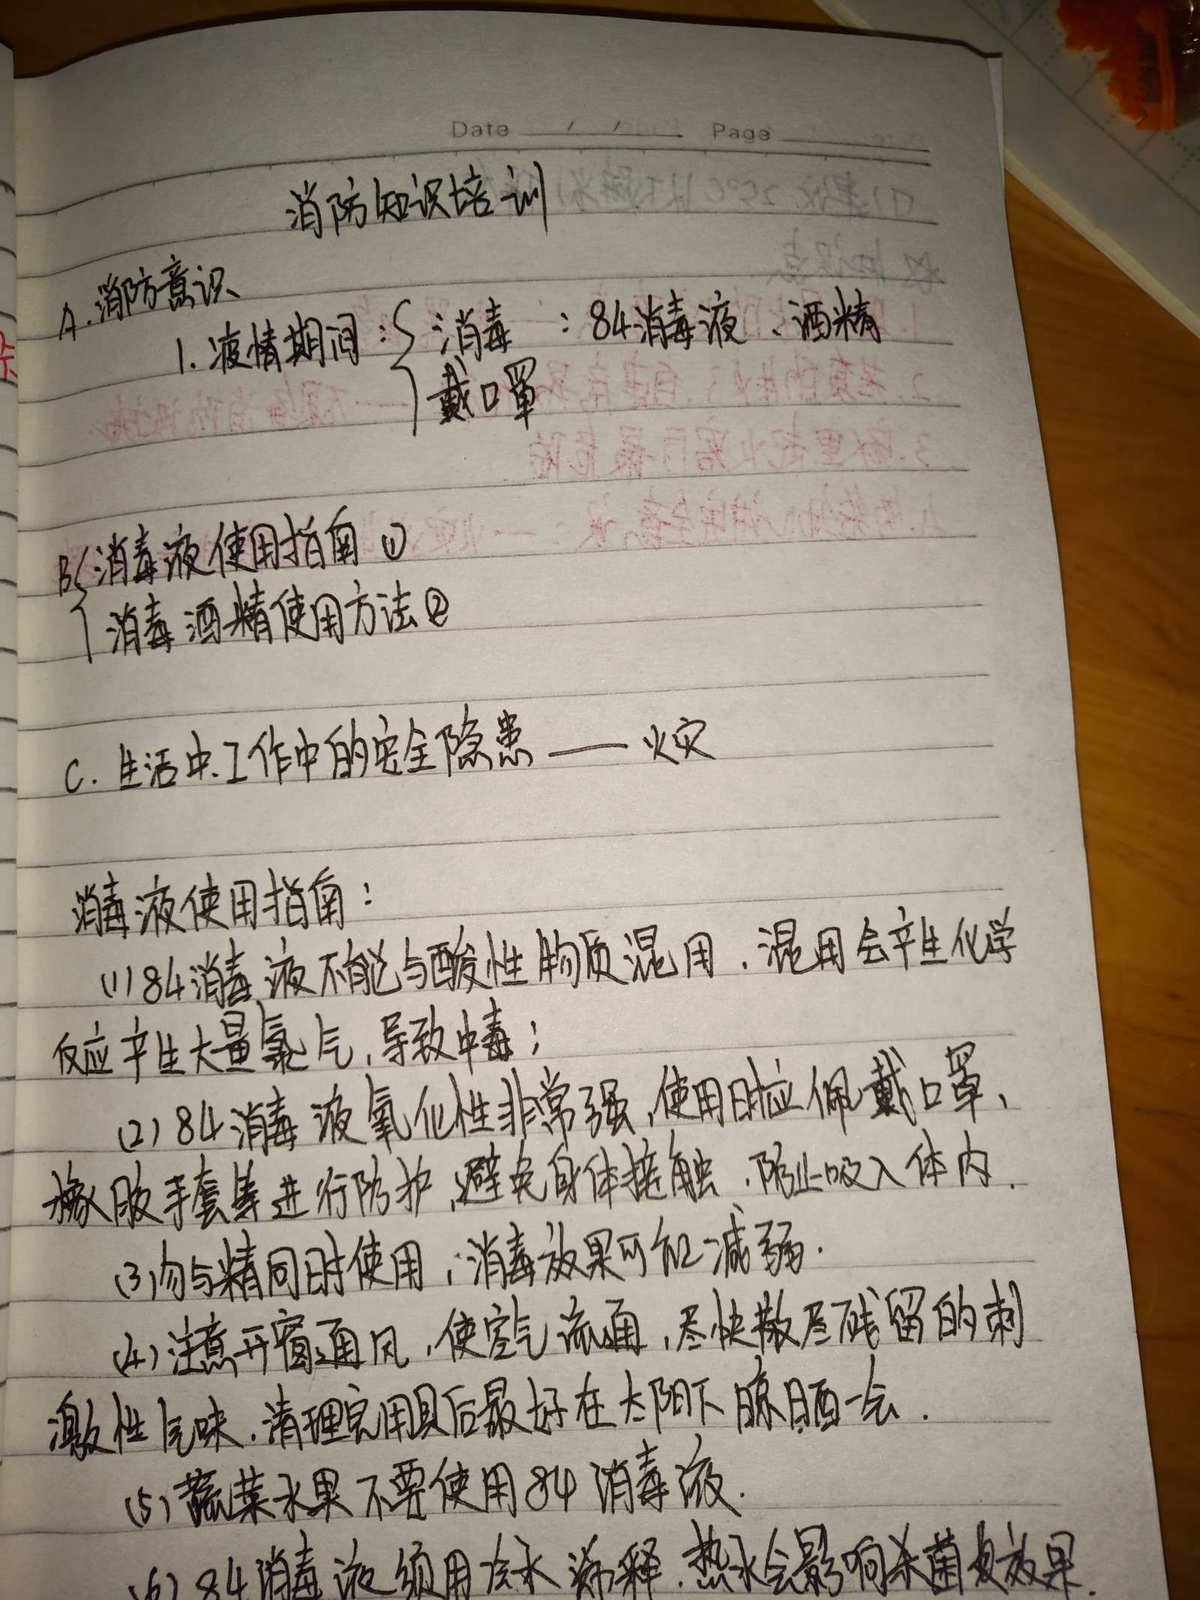 Date / / Page
消防知识培训
A.消防意识
1.疫情期间:{消毒 :84消毒液、酒精
戴口罩
B{消毒液使用指南①
消毒酒精使用方法②
C.生活中、工作中的安全隐患——火灾
消毒液使用指南:
(1)84消毒液不能与酸性物质混用,混用会产生化学
反应产生大量氯气,导致中毒;
(2)84消毒液氧化性非常强,使用时应佩戴口罩、
橡胶手套等进行防护,避免身体接触,防止吸入体内.
(3)勿与精同时使用,消毒效果可能减弱.
(4)注意开窗通风,使空气流通,尽快散尽残留的刺
激性气味,清理完用具后最好在太阳下晾晒一会.
(5)蔬菜水果不要使用84消毒液.
(6)84消毒液须用冷水稀释,热水会影响杀菌效果.